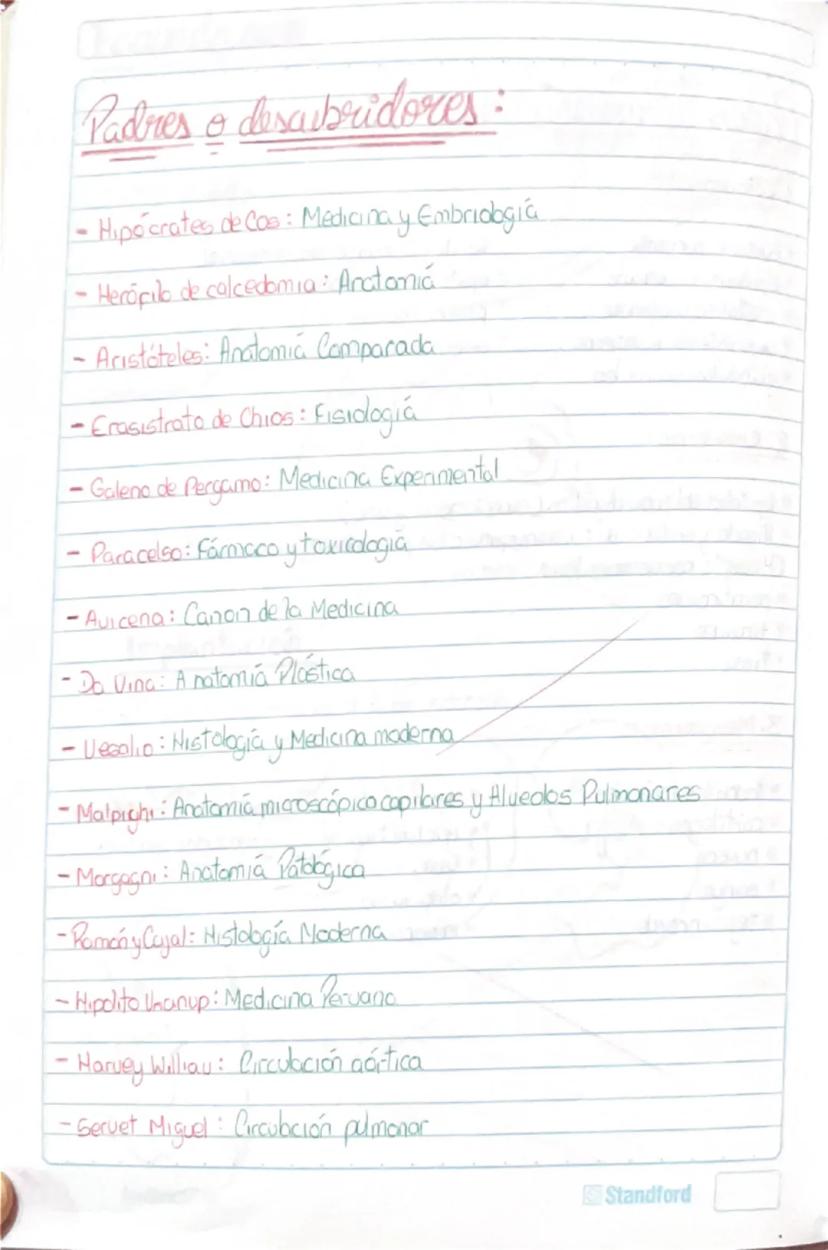 Padres o descubridores:
- Hipócrates de Cos: Medicina y Embriología
- Herófilo de calcedomia: Anatomiá
- Aristóteles: Anatomiá Comparada
- Erasistrato de Chios: Fisiologiá
- Galeno de Pergamo: Medicina Experimental
- Paracelso: Fármaco y toxicologiá
- Avicena: Canon de la Medicina
- Da Vinci: Anatomiá Plástica
- Vesalio: Histología y Medicina moderna
- Malpighi: Anatomiá microscópico capilares y Alveolos Pulmonares
- Morgagni: Anatomiá Patológica
- Ramón y Cajal: Histología Moderna
- Hipolito Unanup: Medicina Peruana
- Harvey Williau: Circulación aórtica
- Servet Miguel: Circulación pulmonar
Standford